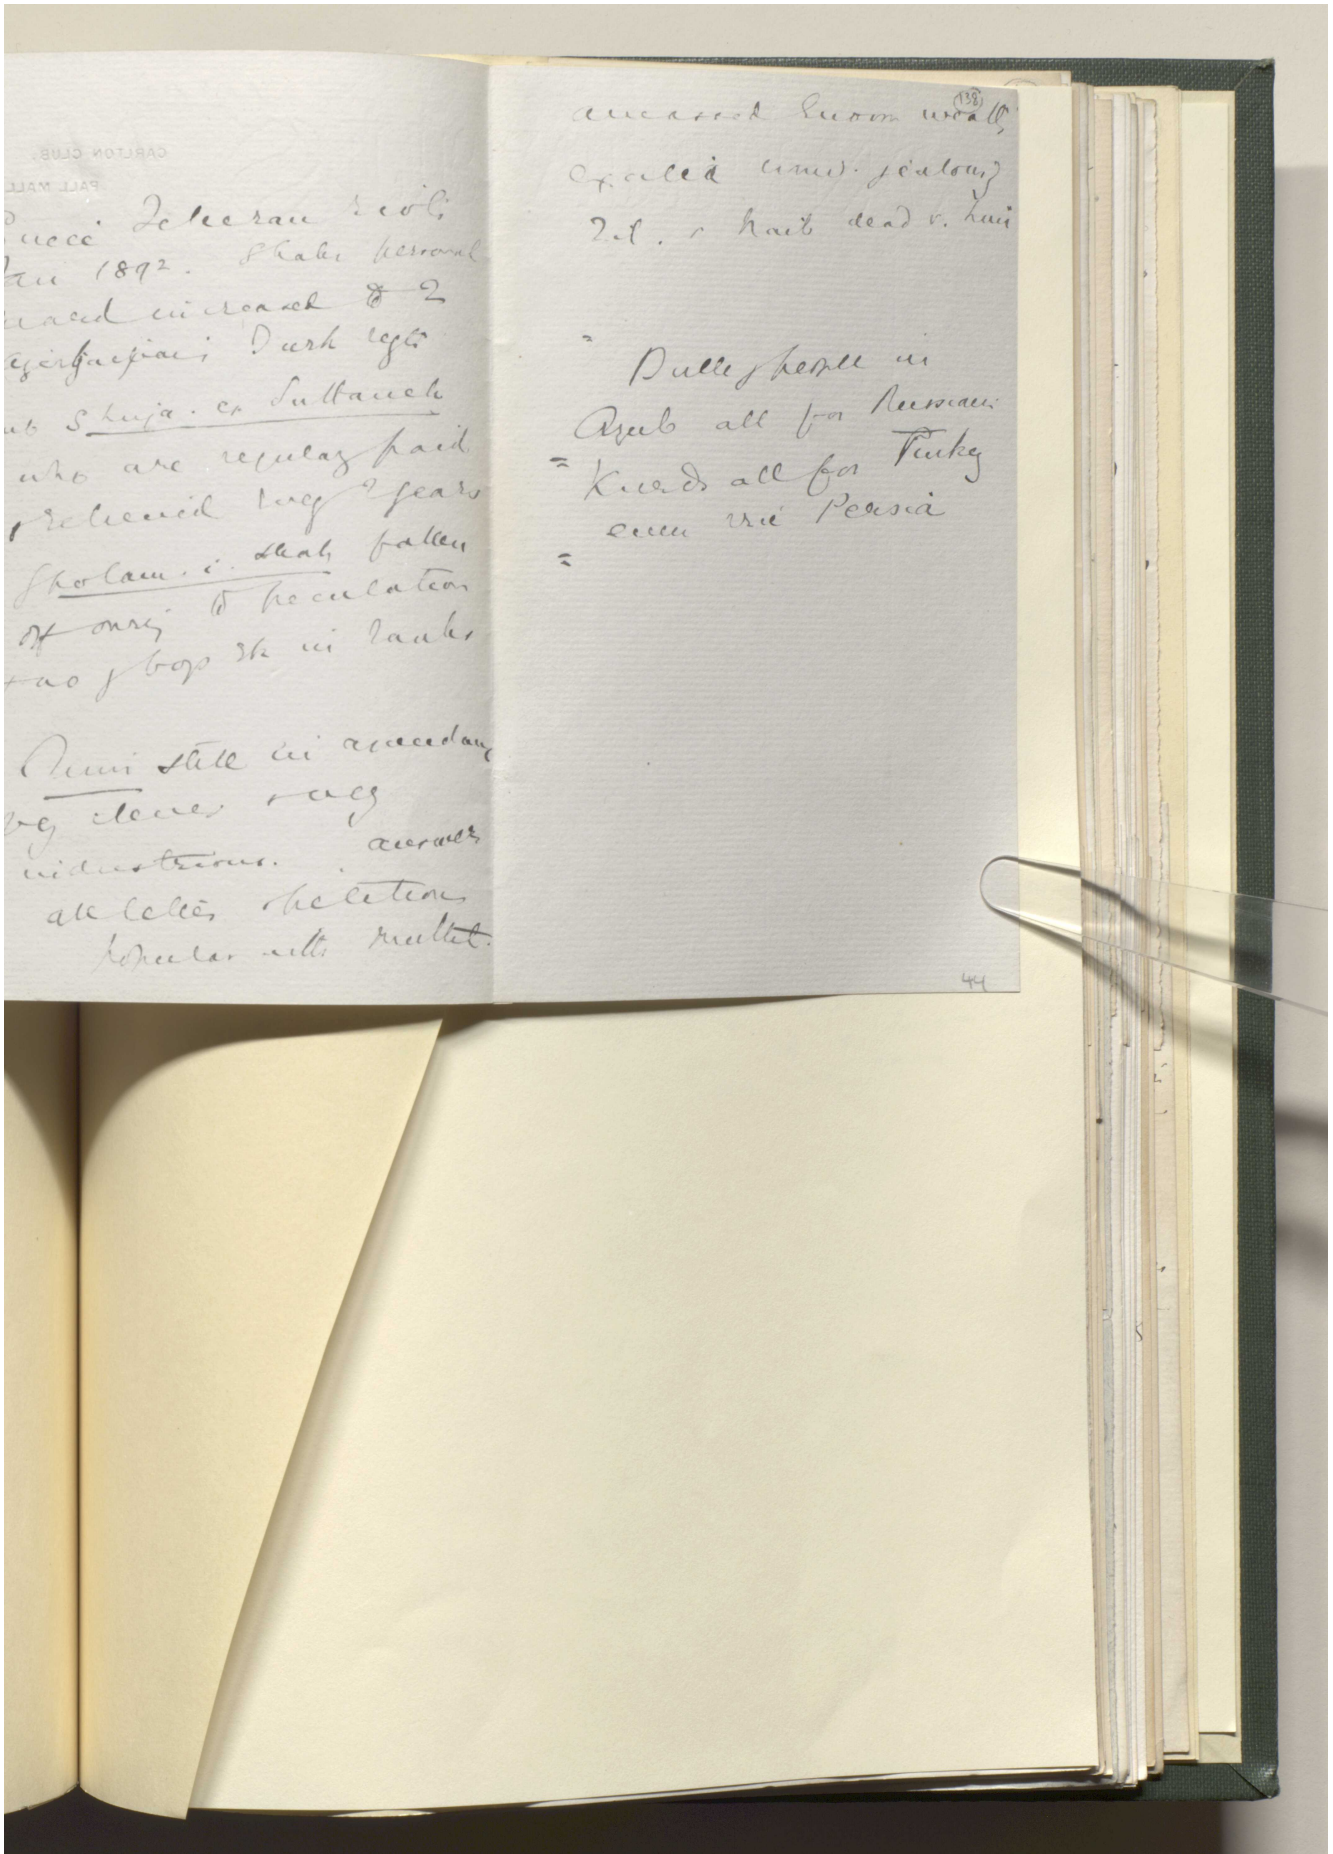 CARLTON CLUB,
PALL MALL.
Since Teheran riots
Jan 1892. Shahs personal
guard increased to 2
Azerbaijani Turk regts
Shuja. es Sultaneh
who are regularly paid
relieved every 2 years
Gholam. i. Shah fallen
off owing to peculation
& boys in ranks
Amin still in ascendancy
very clever & very
industrious. answers
all letters & petitions
popular with mullahs.
138
amassed enormous wealth
excited univ. jealousy
Zil. & Naib dead v. him
Bulk of people in
Azerb all for Russians
=
Kurds all for Turkey
even in Persia
=
44